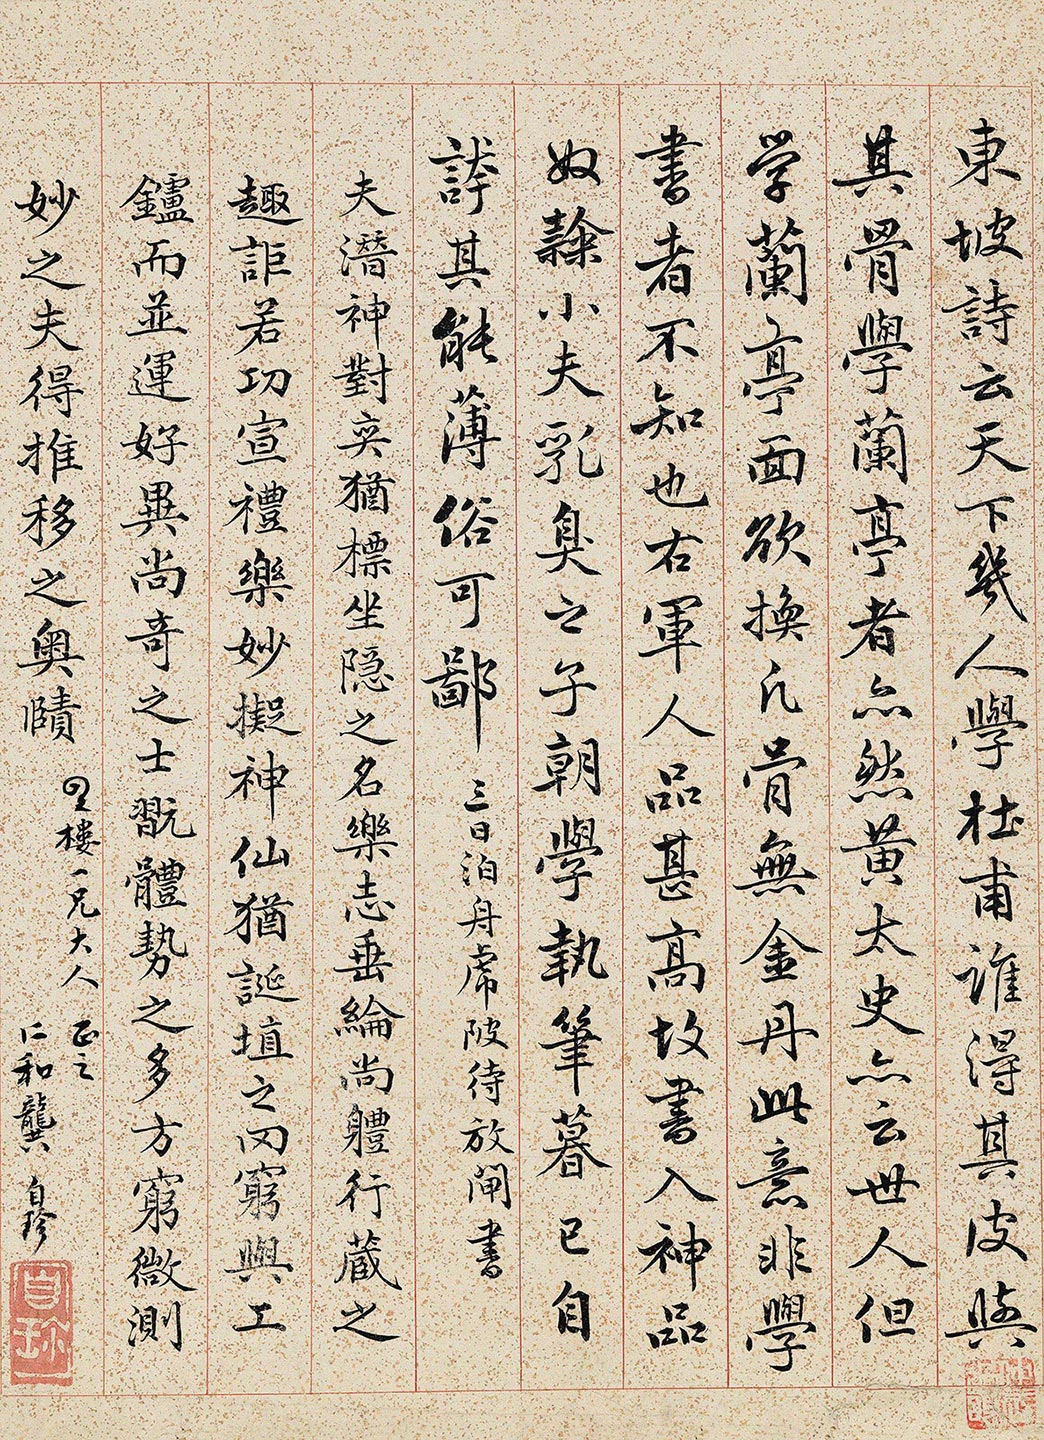 東坡詩云天下幾人學杜甫誰得其皮與
其骨學蘭亭者亦然黃太史亦云世人但
学蘭亭面欲換凡骨無金丹此意非學
書者不知也右軍人品甚高故書入神品
奴隸小夫乳臭之子朝學執筆暮已自
誇其能薄俗可鄙 三日泊舟虎陂待放閘書
夫潛神對奕猶標坐隱之名樂志垂綸尚體行藏之
趣詎若功宣禮樂妙擬神仙猶誕埴之罔窮與工
鑪而並運好異尚奇之士翫體勢之多方窮微測
妙之夫得推移之奧賾 星樓一兄大人 正之
仁和龔自珍
自珍